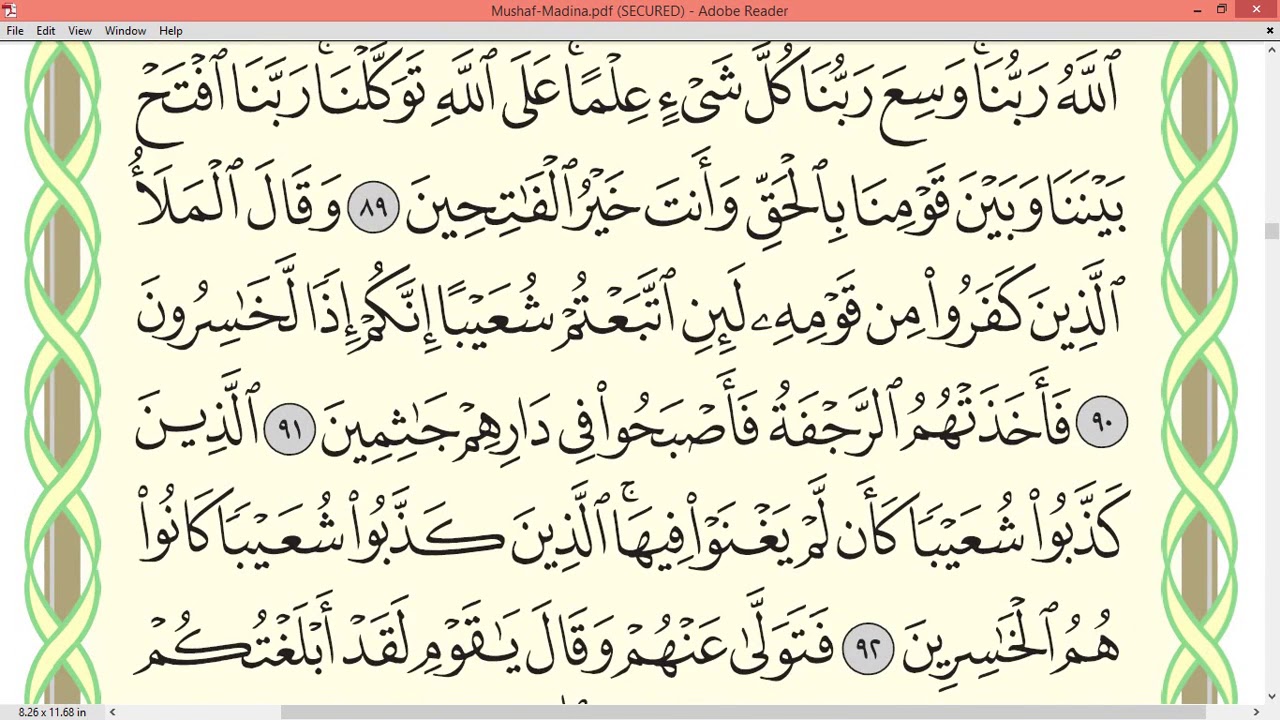 Mushaf-Madina.pdf (SECURED) - Adobe Reader
File Edit View Window Help
ٱللَّهُ رَبُّنَاۚ وَسِعَ رَبُّنَا كُلَّ شَىۡءٍ عِلۡمًاۚ عَلَى ٱللَّهِ تَوَكَّلۡنَاۚ رَبَّنَا ٱفۡتَحۡ
بَيۡنَنَا وَبَيۡنَ قَوۡمِنَا بِٱلۡحَقِّ وَأَنتَ خَيۡرُ ٱلۡفَٰتِحِينَ ٨٩ وَقَالَ ٱلۡمَلَأُ
ٱلَّذِينَ كَفَرُواْ مِن قَوۡمِهِۦ لَئِنِ ٱتَّبَعۡتُمۡ شُعَيۡبًا إِنَّكُمۡ إِذٗا لَّخَٰسِرُونَ
٩٠ فَأَخَذَتۡهُمُ ٱلرَّجۡفَةُ فَأَصۡبَحُواْ فِي دَارِهِمۡ جَٰثِمِينَ ٩١ ٱلَّذِينَ
كَذَّبُواْ شُعَيۡبٗا كَأَن لَّمۡ يَغۡنَوۡاْ فِيهَاۚ ٱلَّذِينَ كَذَّبُواْ شُعَيۡبٗا كَانُواْ
هُمُ ٱلۡخَٰسِرِينَ ٩٢ فَتَوَلَّىٰ عَنۡهُمۡ وَقَالَ يَٰقَوۡمِ لَقَدۡ أَبۡلَغۡتُكُمۡ
8.26 x 11.68 in